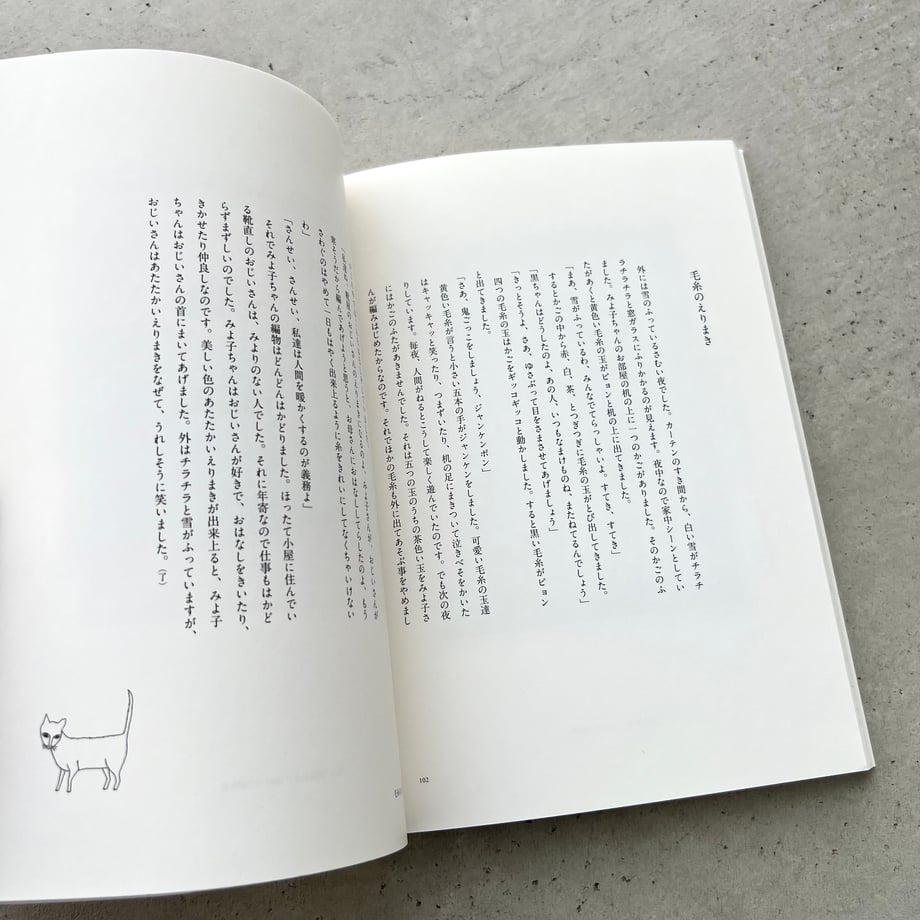 毛糸のえりまき
外には雪のふっているさむい夜でした。カーテンのすき間から、白い雪がチラチ
ラチラチラと窓ガラスにふりかかるのが見えます。夜中なので家中シーンとしてい
ました。みよ子ちゃんのお部屋の机の上に一つのかごがありました。そのかごのふ
たがあくと黄色い毛糸の玉がピョンと机の上に出てきました。
「まあ、雪がふっているわ、みんなでてらっしゃいよ。すてき、すてき」
するとかごの中から赤、白、茶、とつぎつぎに毛糸の玉がとび出してきました。
「黒ちゃんはどうしたのよ、あの人、いつもなまけものね、またねてるんでしょう」
「きっとそうよ、さあ、ゆさぶって目をさまさせてあげましょう」
四つの毛糸の玉はかごをギッコギッコと動かしました。すると黒い毛糸がピョン
と出てきました。
「さあ、鬼ごっこをしましょう、ジャンケンポン」
黄色い毛糸が言うと小さい五本の手がジャンケンをしました。可愛い毛糸の玉達
はキャッキャッと笑ったり、つまずいたり、机の足にまきついて泣きべそをかいた
りしています。毎夜、人間がねるとこうして楽しく遊んでいたのです。でも次の夜
にはかごのふたがあきませんでした。それは五つの玉のうちの茶色い玉をみよ子さ
んが編みはじめたからなのです。それでほかの毛糸も外に出てあそぶ事をやめまし
102
えりまきになるのよ、みよ子さんが、おじいさんが
寒そうだから編んであげようと思うと、お母さんにおはなししてらしたのよ、もう
さわぐのはやめて一日もはやく出来上るように糸をきれいにしてなくちゃいけない
わ」
「さんせい、さんせい、私達は人間を暖かくするのが義務よ」
それでみよ子ちゃんの編物はどんどんはかどりました。ほったて小屋に住んでい
る靴直しのおじいさんは、みよりのない人でした。それに年寄なので仕事もはかど
らずまずしいのでした。みよ子ちゃんはおじいさんが好きで、おはなしをきいたり、
きかせたり仲良しなのです。美しい色のあたたかいえりまきが出来上ると、みよ子
ちゃんはおじいさんの首にまいてあげました。外はチラチラと雪がふっていますが、
おじいさんはあたたかいえりまきをなぜて、うれしそうに笑いました。(了)